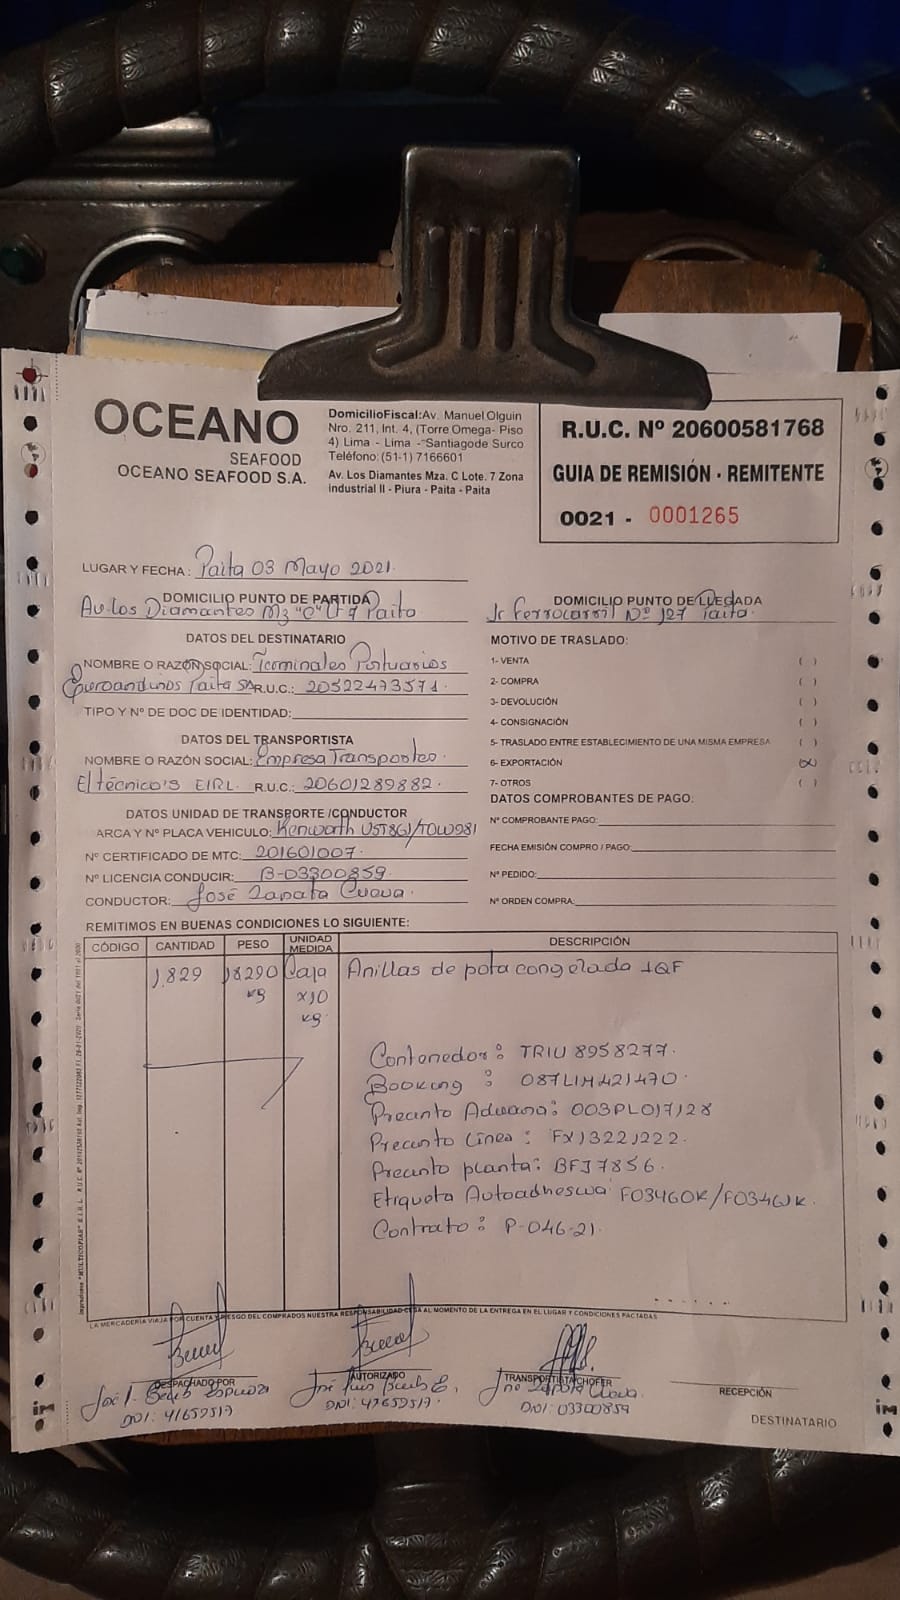 OCEANO
SEAFOOD
OCEANO SEAFOOD S.A.
DomicilioFiscal:Av. Manuel Olguin
Nro. 211, Int. 4, (Torre Omega- Piso
4) Lima - Lima -"Santiagode Surco
Teléfono:(51-1) 7166601
Av. Los Diamantes Mza. C Lote. 7 Zona
industrial II - Piura - Paita - Paita
R.U.C. Nº 20600581768
GUIA DE REMISIÓN - REMITENTE
0021 - 0001265
LUGAR Y FECHA: Paita 03 Mayo 2021.
DOMICILIO PUNTO DE PARTIDA
Av. Los Diamantes Mz "C" Lt 7 Paita
DOMICILIO PUNTO DE LLEGADA
Jr Ferrocarril Nº 127 Paita.
DATOS DEL DESTINATARIO
NOMBRE O RAZÓN SOCIAL: Terminales Portuarios
Euroandinos Paita SA R.U.C.: 20522473571.
TIPO Y Nº DE DOC DE IDENTIDAD:
DATOS DEL TRANSPORTISTA
NOMBRE O RAZÓN SOCIAL: Empresa Transportes
El técnico's EIRL. R.U.C.: 20601289882.
DATOS UNIDAD DE TRANSPORTE /CONDUCTOR
ARCA Y Nº PLACA VEHICULO: Kenworth
Nº CERTIFICADO DE MTC: 201601007.
Nº LICENCIA CONDUCIR: B-03300859.
CONDUCTOR: José Zapata Cueva.
MOTIVO DE TRASLADO:
1- VENTA ( )
2- COMPRA ( )
3- DEVOLUCIÓN ( )
4- CONSIGNACIÓN ( )
5- TRASLADO ENTRE ESTABLECIMIENTO DE UNA MISMA EMPRESA ( )
6- EXPORTACIÓN (x)
7- OTROS ( )
DATOS COMPROBANTES DE PAGO:
Nº COMPROBANTE PAGO:
FECHA EMISIÓN COMPRO / PAGO:
Nº PEDIDO:
Nº ORDEN COMPRA:
REMITIMOS EN BUENAS CONDICIONES LO SIGUIENTE:
CÓDIGO CANTIDAD PESO UNIDAD MEDIDA DESCRIPCIÓN
1,829 18290 Caja Anillas de pota congelada IQF
kg x10
kg.
Contenedor: TRIU 8958277.
Booking : 087LIM421470.
Precinto Aduana: 003PL017128
Precinto Línea: FX13221222.
Precinto planta: BFI7856.
Etiqueta Autoadhesiva
Contrato: P-046-21.
LA MERCADERÍA VIAJA POR CUENTA Y RIESGO DEL COMPRADOS NUESTRA RESPONSABILIDAD CESA AL MOMENTO DE LA ENTREGA EN EL LUGAR Y CONDICIONES PACTADAS
DESPACHADO POR
AUTORIZADO
José Luis
TRANSPORTISTA/CHOFER
José Zapata Cueva.
DNI: 03300859
RECEPCIÓN
DESTINATARIO